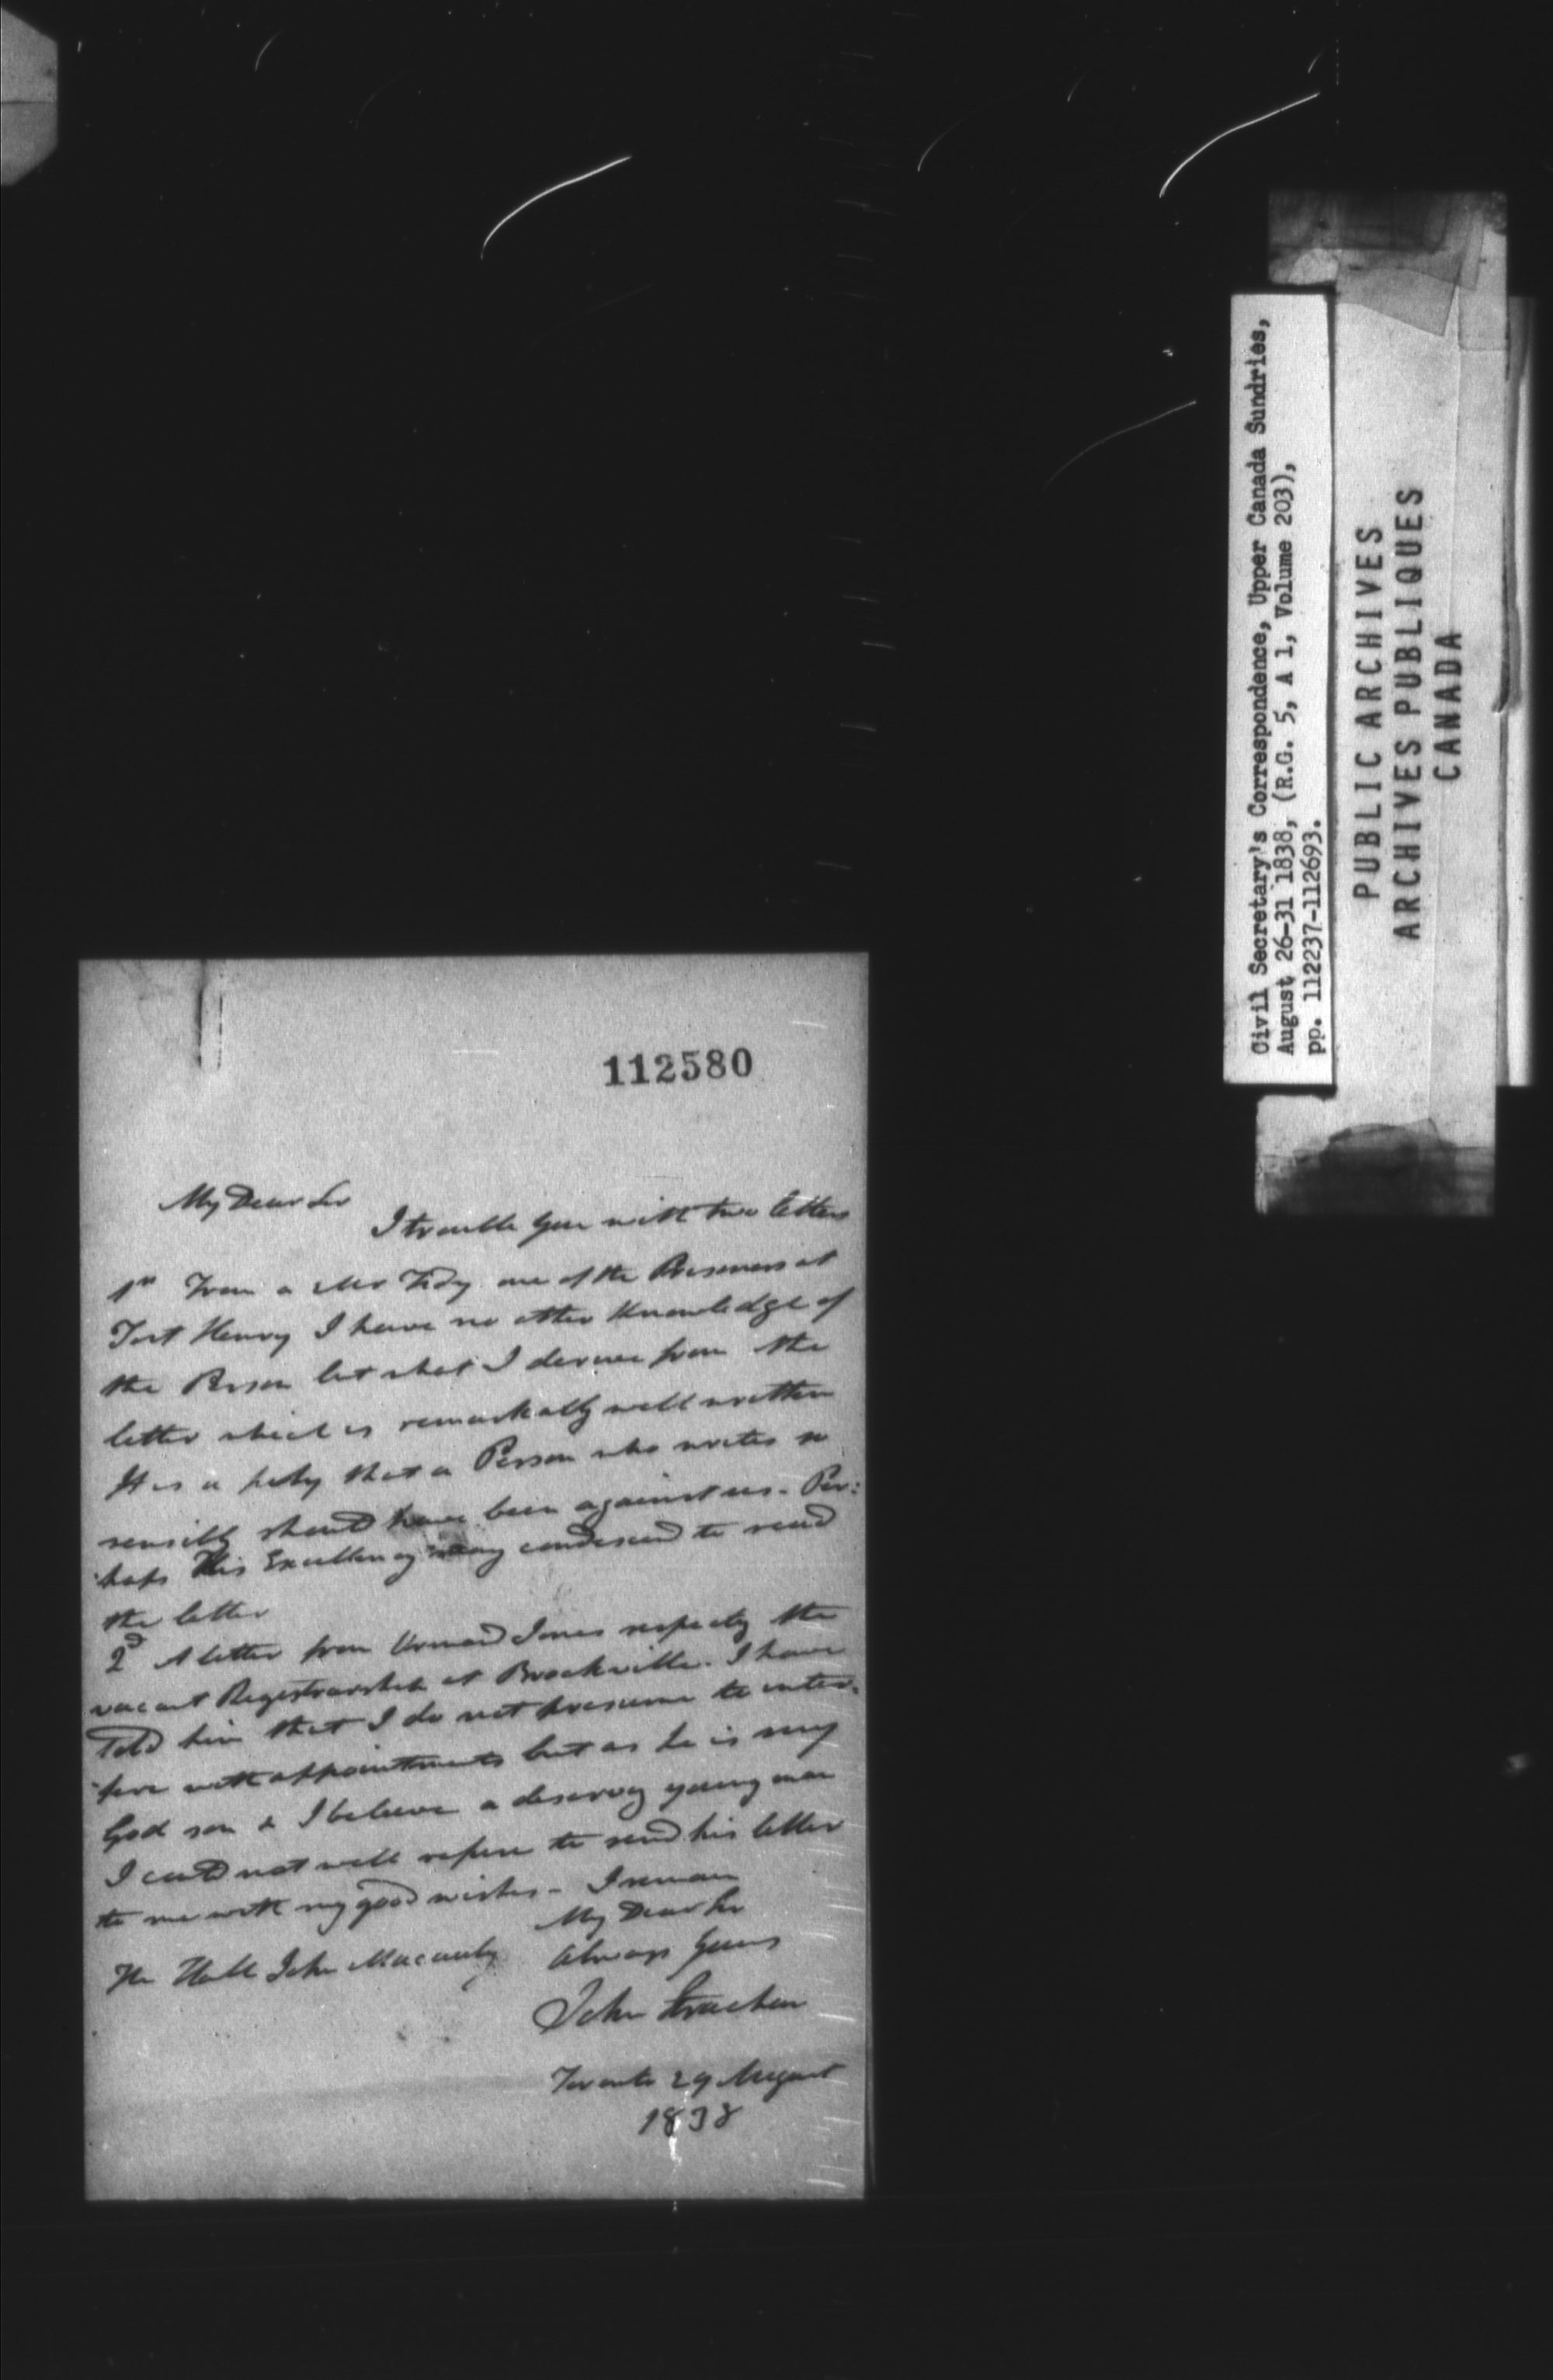 112580
My Dear Sir
I trouble you with two letters
1st From a Mr Tidy one of the Prisoners at
Fort Henry I have no other Knowledge of
the Person but what I derive from the
letter which is remarkably well written
It is a pity that a Person who writes so
sensibly should have been against us. Per:
haps His Excellency may condescend to read
the letter
2d A letter from Ormond Jones respectg the
vacant Registrarship at Brockville. I have
told him that I do not presume to inter:
fere with appointments but as he is my
God son & I believe a deservg young man
I could not well refuse to send his letter
to me with my good wishes - I remain
My Dear Sir
The Honble John Macaulay Always yours
John Strachan
Toronto 29 August
1838
Civil Secretary's Correspondence, Upper Canada Sundries,
August 26-31 1838, (R.G. 5, A 1, Volume 203),
pp. 112237-112693.
PUBLIC ARCHIVES
ARCHIVES PUBLIQUES
CANADA